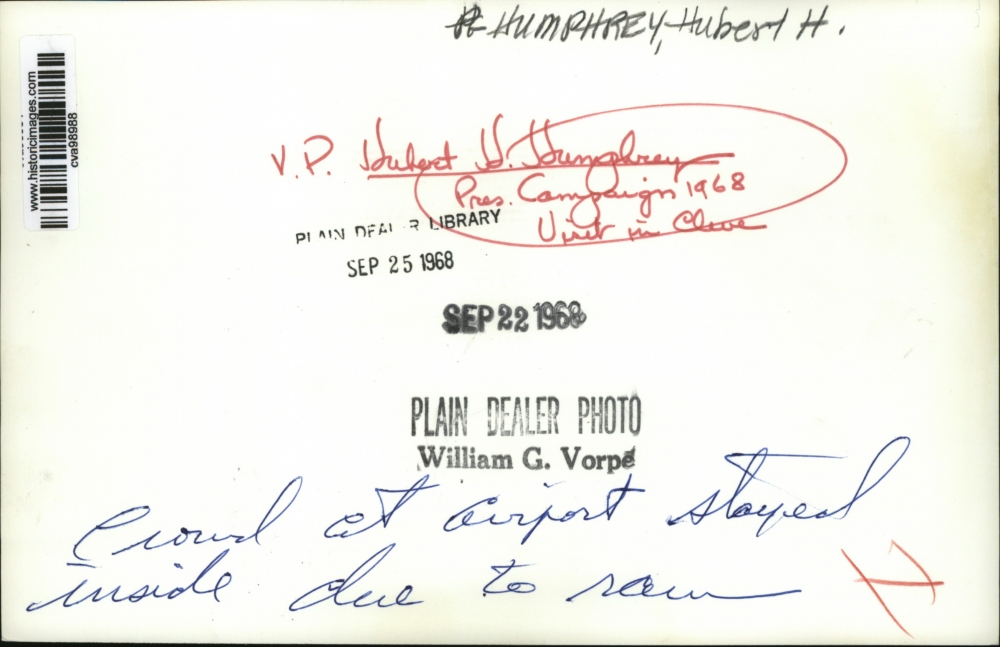 HUMPHREY, Hubert H.
www.historicimages.com
cva98988
V.P. Hubert H. Humphrey
Pres. Campaign 1968
Visit in Cleve
PLAIN DEALER LIBRARY
SEP 25 1968
SEP 22 1968
PLAIN DEALER PHOTO
William G. Vorpe
Crowd at airport stayed
inside due to rain